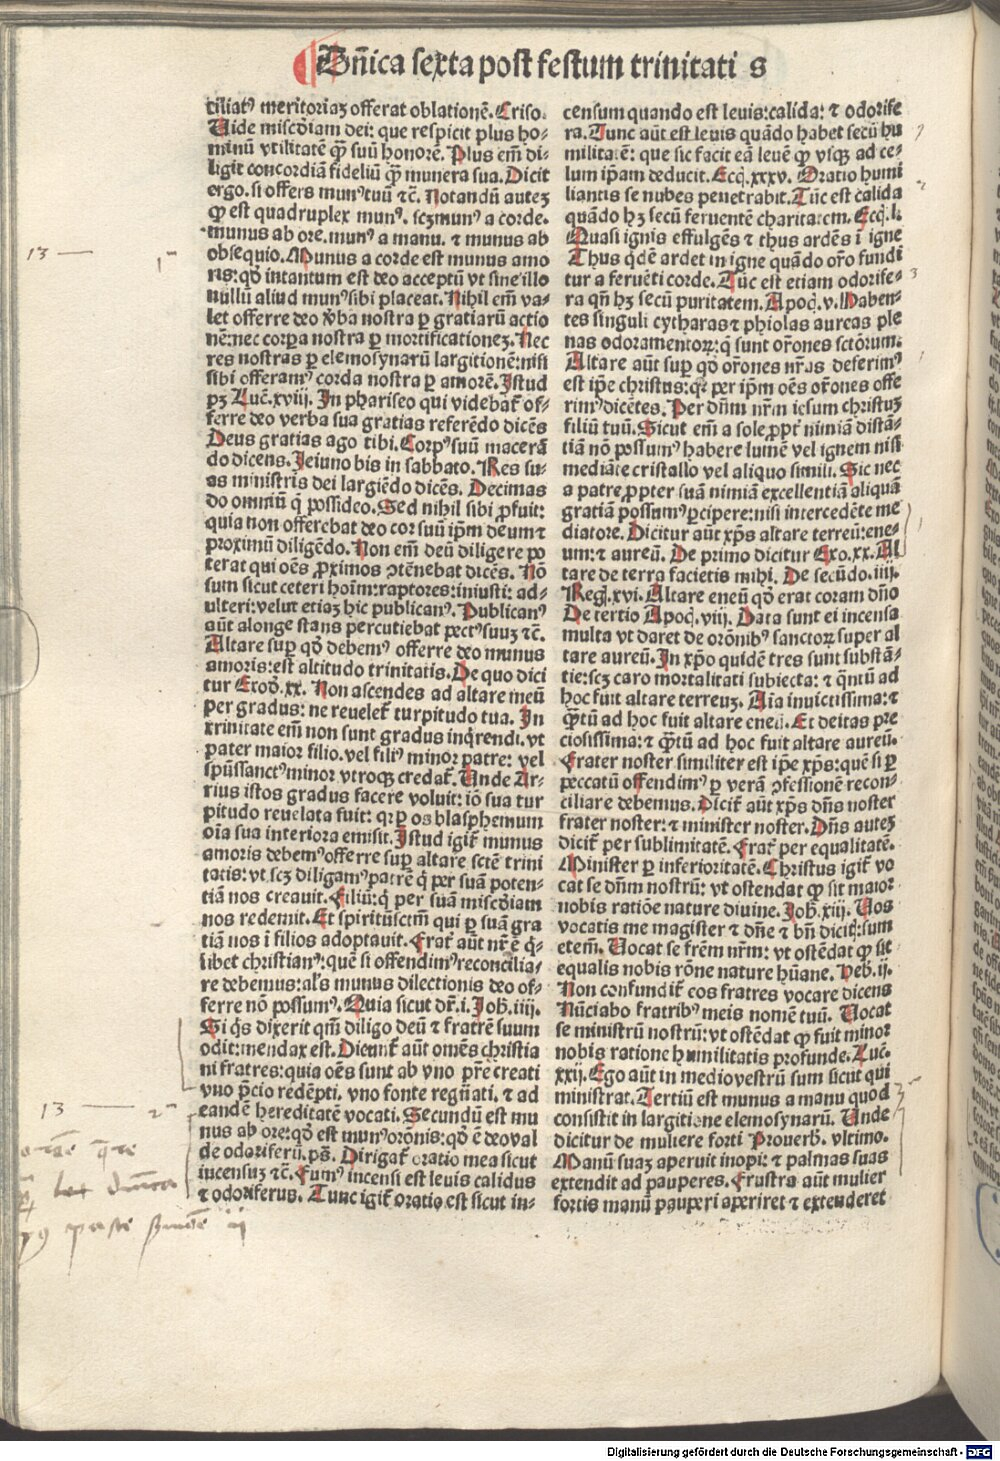 Dn̄ica sexta post festum trinitati s
ciliatꝰ meritoriaꝫ offerat oblationē. Criso.
Uide misc̄diam dei: que respicit plus ho-
minū vtilitatē qꝫ suū honorē. Plus em̄ di-
ligit concordiā fideliū qꝫ munera sua. Dicit
ergo. si offers munꝰ tuū ⁊c̄. Notandū auteꝫ
ꝙ est quadruplex munꝰ. scꝫ munꝰ a corde.
munus ab ore. munꝰ a manu. ⁊ munus ab
obsequio. Munus a corde est munus amo
ris: qd̄ intantum est deo acceptū vt sine illo
nullū aliud munꝰ sibi placeat. Nihil em̄ va-
let offerre deo v̄ba nostra ꝑ gratiarū actio
nē: nec corꝑa nostra ꝑ mortificationeꝫ. Nec
res nostras ꝑ elemosynarū largitionē: nisi
sibi offeramꝰ corda nostra ꝑ amorē. Istud
pꝫ Luc̄. xviij. In phariseo qui videbat̄ of-
ferre deo verba sua gratias referēdo dicēs
Deus gratias ago tibi. Corpꝰ suū macerā
do dicens. Ieiuno bis in sabbato. Res su-
as ministris dei largiēdo dicēs. Decimas
do omniū q̄ possideo. Sed nihil sibi ꝓfuit:
quia non offerebat deo cor suū ip̄m deum ⁊
proximū diligēdo. Non em̄ deū diligere po
terat qui oēs ꝓximos ꝯtēnebat dicēs. Nō
sum sicut ceteri hoīm: raptores: iniusti: ad-
ulteri: velut etiaꝫ hic publicanꝰ. Publicanꝰ
aūt a longe stans percutiebat pectꝰ suuꝫ ⁊c̄.
Altare suꝑ qd̄ debemꝰ offerre deo munus
amoris: est altitudo trinitatis. De quo dici
tur Exod̄. xx. Non ascendes ad altare meū
per gradus: ne reuelet̄ turpitudo tua. In
trinitate em̄ non sunt gradus inq̄rendi. vt
pater maior filio. vel filiꝰ minor patre: vel
spūssanctꝰ minor vtroqꝫ credat̄. Unde Ar-
rius istos gradus facere voluit: iō sua tur
pitudo reuelata fuit: qꝛ ꝑ os blasphemum
oīa sua interiora emisit. Istud igit̄ munus
amoris debemꝰ offerre suꝑ altare sctē trini
tatis: vt scꝫ diligamꝰ patrē q̄ per suā poten-
tiā nos creauit. Filiū: q̄ per suā misc̄diam
nos redemit. Et spiritūsctm̄ qui ꝑ suā gra
tiā nos ī filios adoptauit. Frat̄ aūt nr̄ ē q̄-
libet christianꝰ: quē si offendimꝰ reconcilia-
re debemus: al̓s munus dilectionis deo of-
ferre nō possumꝰ. Quia sicut dr̄. i. Joh̄. iiij.
Si q̇s dixerit qm̄ diligo deū ⁊ fratrē suum
odit: mendax est. Dicunt̄ aūt omēs christia
ni fratres: quia oēs sunt ab vno pr̄e creati
vno p̄cio redēpti. vno fonte regn̄ati. ⁊ ad
eandē hereditatē vocati. Secundū est mu
nus ab ore: qd̄ est munꝰ or̄onis: qd̄ ē deo val
de odoriferū. ps̄. Dirigat̄ oratio mea sicut
incensuꝫ ⁊c̄. Fumꝰ incensi est leuis calidus
⁊ odoriferus. Tunc igit̄ oratio est sicut in-
censum quando est leuis: calida: ⁊ odorife
ra. Tunc aūt est leuis quādo habet secū hu
militatē: que sic facit eā leuē ꝙ vsqꝫ ad ce-
lum ip̄am deducit. Ecc̄i. xxxv. Oratio humi
liantis se nubes penetrabit. Tūc est calida
quādo hꝫ secū feruentē charitatem. Ecc̄i. l.
Quasi ignis effulgēs ⁊ thus ardēs ī igne
Thus qd̄ē ardet in igne quādo or̄o fundi
tur a feruēti corde. Tūc est etiam odorife-
ra qn̄ hꝫ secū puritatem. Apoc̄. v. Haben-
tes singuli cytharas ⁊ phiolas aureas ple
nas odoramentoꝝ: q̄ sunt or̄ones sctōrum.
Altare aūt suꝑ qd̄ or̄ones nr̄as deferimꝰ
est ip̄e christus: qꝛ per ip̄m oēs or̄ones offe
rimꝰ dicētes. Per dn̄m nr̄m iesum christuꝫ
filiū tuū. Sicut em̄ a sole ꝓpt̄ nimiā distā-
tiā nō possumꝰ habere lumē vel ignem nisi
mediāte cristallo vel aliquo simili. Sic nec
a patre ꝓpter suā nimiā excellentiā aliquā
gratiā possumꝰ ꝑcipere: nisi intercedēte me
diatore. Dicitur aūt xp̄s altare terreū: ene-
um: ⁊ aureū. De primo dicitur Exo. xx. Al
tare de terra facietis mihi. De secūdo. iiij.
Reḡ. xvi. Altare eneū qd̄ erat coram dn̄o
De tertio Apoc̄. viij. Data sunt ei incensa
multa vt daret de orōnibꝰ sanctoꝝ super al
tare aureū. In xp̄o quidē tres sunt substā-
tie: scꝫ caro mortalitati subiecta: ⁊ q̄ntū ad
hoc fuit altare terreuꝫ. Aīa inuictissima: ⁊
q̄ꝫtū ad hoc fuit altare eneū. Et deitas pre
ciosissima: ⁊ q̄ꝫtū ad hoc fuit altare aureū.
Frater noster similiter est ip̄e xp̄s: quē si ꝑ
peccatū offendimꝰ ꝑ verā ꝯfessionē recon-
ciliare debemus. Dicit̄ aūt xp̄s dn̄s noster
frater noster: ⁊ minister noster. Dn̄s auteꝫ
dicit̄ per sublimitatē. Frat̄ per equalitatē.
Minister ꝑ inferioritatē. Christus igit̄ vo
cat se dn̄m nostrū: vt ostendat ꝙ sit maior
nobis ratiōe nature diuine. Joh̄. xiij. Uos
vocatis me magister ⁊ dn̄e ⁊ bn̄ dicitꝭ: sum
etem̄. Uocat se fr̄em nr̄m: vt ostēdat ꝙ sit
equalis nobis rōne nature hūane. Heb̄. ij.
Non confundit̄ eos fratres vocare dicens
Nūciabo fratribꝰ meis nomē tuū. Uocat
se ministrū nostrū: vt ostēdat ꝙ fuit minor
nobis ratione humilitatis profunde. Luc̄.
xxij. Ego aūt in medio vestrū sum sicut qui
ministrat. Tertiū est munus a manu quod
consistit in largitione elemosynarū. Unde
dicitur de muliere forti Prouerb̄. vltimo.
Manū suaꝫ aperuit inopi: ⁊ palmas suas
extendit ad pauperes. Frustra aūt mulier
fortis manū pauꝑi aperiret ⁊ extenderet
13
13
Digitalisierung gefördert durch die Deutsche Forschungsgemeinschaft - DFG